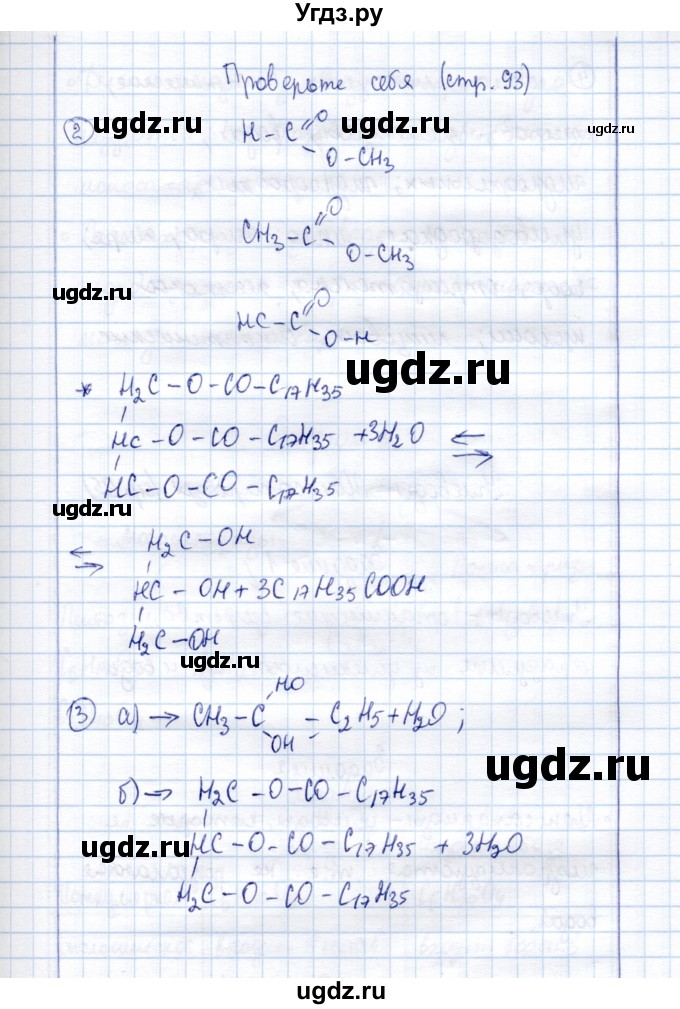 Угдз.ру
Проверьте себя (стр. 93)
2 ugdz.ru H – C O ugdz.ru ugdz.ru
O – CH3
CH3 – C O
O – CH3
ugdz.ru
HC – C O
O – H
ugdz.ru
* H2C – O – CO – C17H35
HC – O – CO – C17H35 + 3H2O ⇄
HC – O – CO – C17H35
ugdz.ru
⇄ H2C – OH
HC – OH + 3C17H35COOH
H2C – OH
ugdz.ru
3 а) → CH3 – C HO OH – C2H5 + H2O ;
ugdz.ru
б) → H2C – O – CO – C17H35
ugdz.ru HC – O – CO – C17H35 + 3H2O
H2C – O – CO – C17H35
ugdz.ru